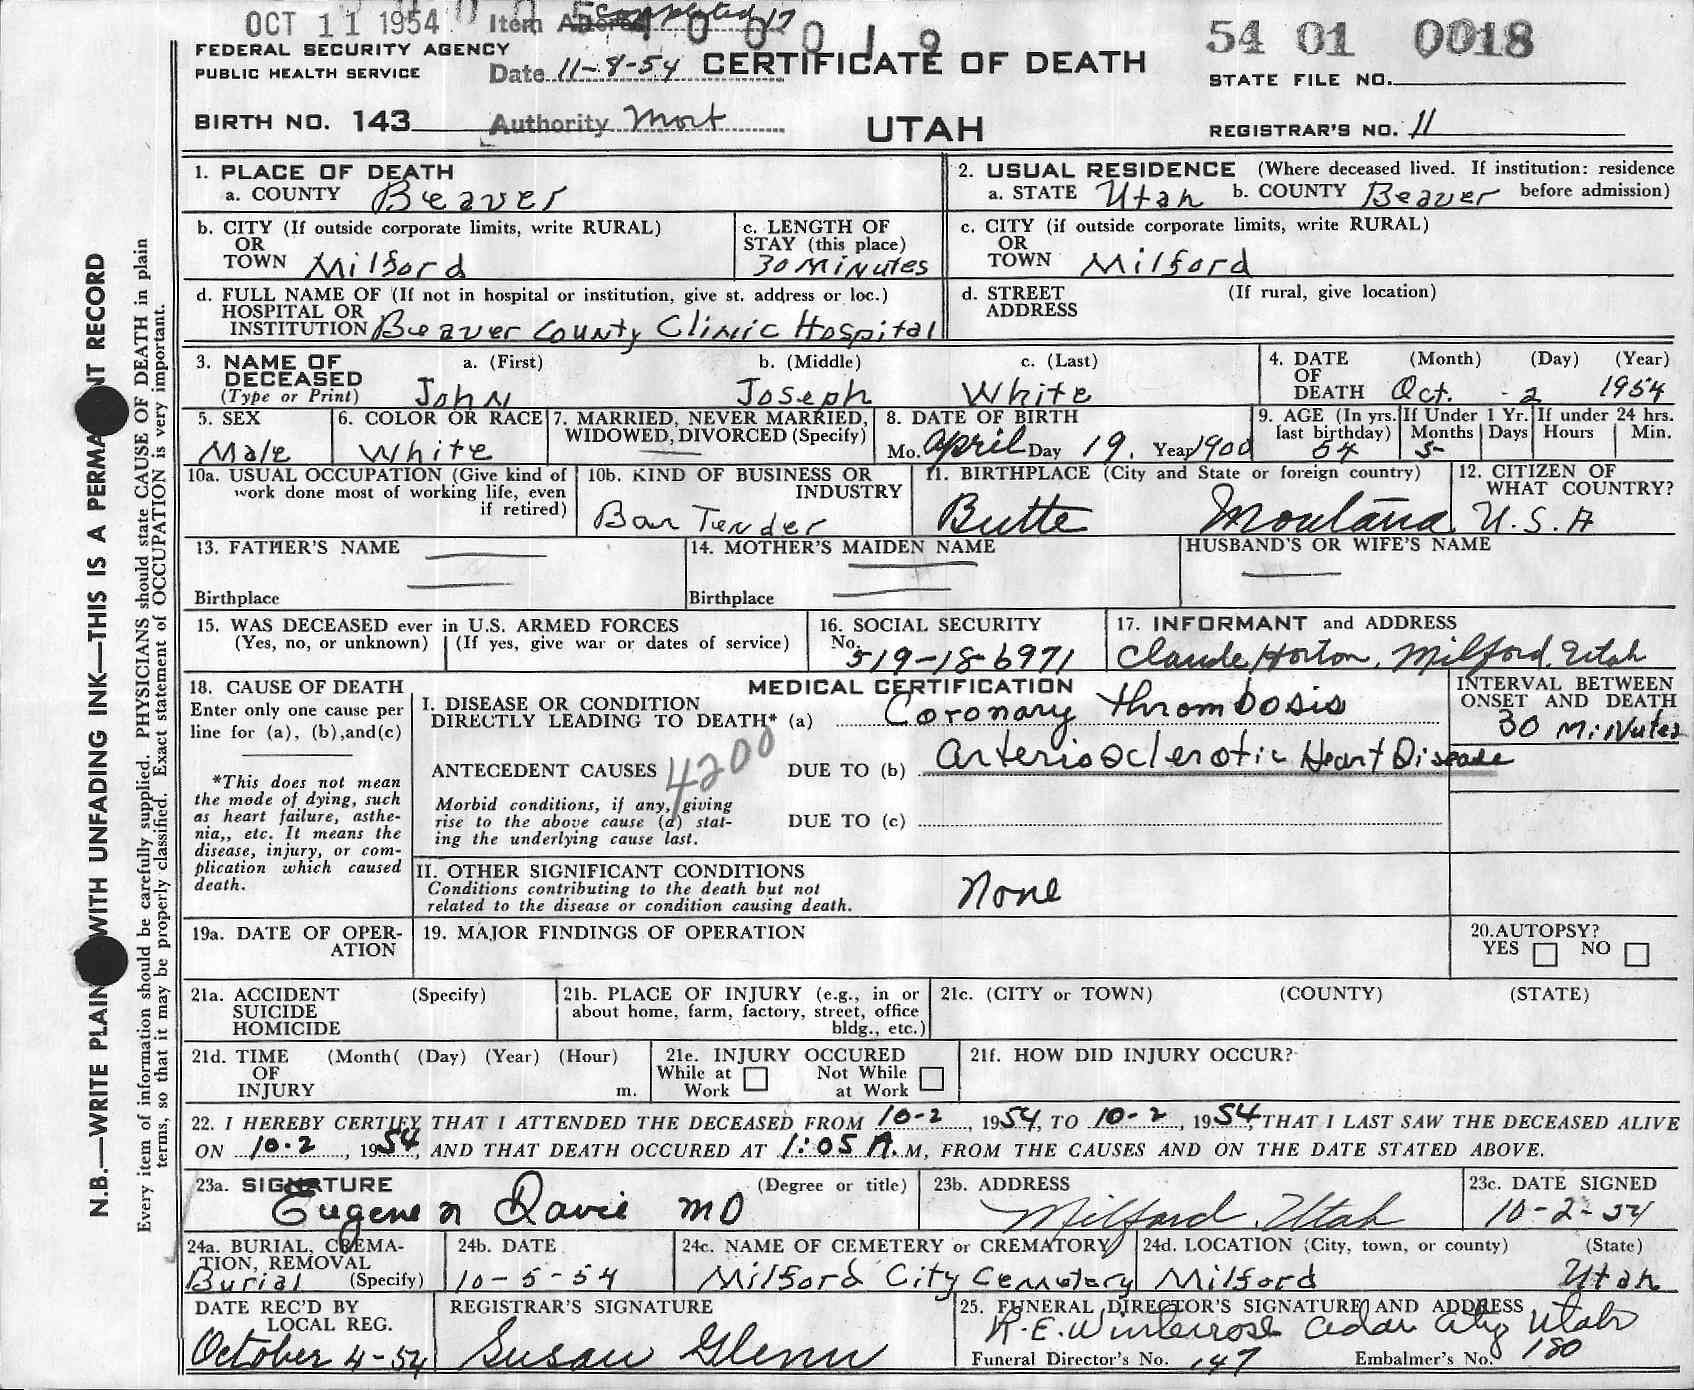 OCT 11 1954 Item Completed 17
FEDERAL SECURITY AGENCY
PUBLIC HEALTH SERVICE
Date 11-8-54 CERTIFICATE OF DEATH
54 01 0018
STATE FILE NO.
BIRTH NO. 143 Authority Mort UTAH REGISTRAR'S NO. 11
1. PLACE OF DEATH
a. COUNTY Beaver
2. USUAL RESIDENCE (Where deceased lived. If institution: residence before admission)
a. STATE Utah b. COUNTY Beaver
b. CITY (If outside corporate limits, write RURAL)
OR
TOWN Milford
c. LENGTH OF
STAY (this place)
30 Minutes
c. CITY (if outside corporate limits, write RURAL)
OR
TOWN Milford
d. FULL NAME OF (If not in hospital or institution, give st. address or loc.)
HOSPITAL OR
INSTITUTION Beaver County Clinic Hospital
d. STREET (If rural, give location)
ADDRESS
3. NAME OF a. (First) b. (Middle) c. (Last)
DECEASED
(Type or Print) John Joseph White
4. DATE (Month) (Day) (Year)
OF
DEATH Oct. - 2 1954
5. SEX
Male
6. COLOR OR RACE
White
7. MARRIED, NEVER MARRIED,
WIDOWED, DIVORCED (Specify)
8. DATE OF BIRTH
Mo. April Day 19. Year 1900
9. AGE (In yrs. last birthday) 54
If Under 1 Yr. Months 5 Days
If under 24 hrs. Hours Min.
10a. USUAL OCCUPATION (Give kind of
work done most of working life, even
if retired)
10b. KIND OF BUSINESS OR
INDUSTRY
Bar Tender
11. BIRTHPLACE (City and State or foreign country)
Butte Montana
12. CITIZEN OF
WHAT COUNTRY?
U.S.A
13. FATHER'S NAME
Birthplace
14. MOTHER'S MAIDEN NAME
Birthplace
HUSBAND'S OR WIFE'S NAME
15. WAS DECEASED ever in U.S. ARMED FORCES
(Yes, no, or unknown) (If yes, give war or dates of service)
16. SOCIAL SECURITY
No. 519-18-6971
17. INFORMANT and ADDRESS
Claude Horton, Milford, Utah
18. CAUSE OF DEATH
Enter only one cause per
line for (a), (b), and (c)
*This does not mean
the mode of dying, such
as heart failure, asthe-
nia,, etc. It means the
disease, injury, or com-
plication which caused
death.
MEDICAL CERTIFICATION
I. DISEASE OR CONDITION
DIRECTLY LEADING TO DEATH* (a) Coronary Thrombosis
INTERVAL BETWEEN
ONSET AND DEATH
30 Minutes
ANTECEDENT CAUSES 4200 DUE TO (b) Arteriosclerotic Heart Disease
Morbid conditions, if any, giving
rise to the above cause (a) stat-
ing the underlying cause last.
DUE TO (c)
II. OTHER SIGNIFICANT CONDITIONS
Conditions contributing to the death but not
related to the disease or condition causing death.
None
19a. DATE OF OPER-
ATION
19. MAJOR FINDINGS OF OPERATION
20. AUTOPSY?
YES NO
21a. ACCIDENT (Specify)
SUICIDE
HOMICIDE
21b. PLACE OF INJURY (e.g., in or
about home, farm, factory, street, office
bldg., etc.)
21c. (CITY or TOWN) (COUNTY) (STATE)
21d. TIME (Month( (Day) (Year) (Hour)
OF
INJURY m.
21e. INJURY OCCURED
While at Work Not While at Work
21f. HOW DID INJURY OCCUR?
22. I HEREBY CERTIFY THAT I ATTENDED THE DECEASED FROM 10-2, 1954, TO 10-2, 1954, THAT I LAST SAW THE DECEASED ALIVE
ON 10-2, 1954, AND THAT DEATH OCCURED AT 1:05 A.M, FROM THE CAUSES AND ON THE DATE STATED ABOVE.
23a. SIGNATURE (Degree or title)
Eugene N Davie MD
23b. ADDRESS
Milford, Utah
23c. DATE SIGNED
10-2-54
24a. BURIAL, CREMA-
TION, REMOVAL
Burial (Specify)
24b. DATE
10-5-54
24c. NAME OF CEMETERY or CREMATORY
Milford City Cemetery
24d. LOCATION (City, town, or county) (State)
Milford Utah
DATE REC'D BY
LOCAL REG.
October 4-54
REGISTRAR'S SIGNATURE
Susan Glenn
25. FUNERAL DIRECTOR'S SIGNATURE AND ADDRESS
R.E. Winterrose Cedar City Utah
Funeral Director's No. 147 Embalmer's No. 180
N.B.—WRITE PLAIN WITH UNFADING INK—THIS IS A PERMANENT RECORD
Every item of information should be carefully supplied. PHYSICIANS should state CAUSE OF DEATH in plain
terms, so that it may be properly classified. Exact statement of OCCUPATION is very important.